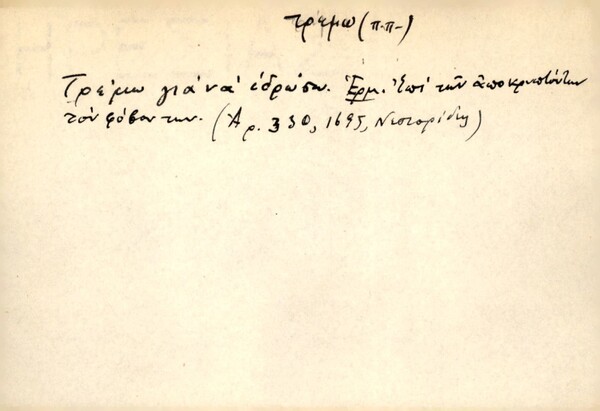 τρέμω (π.π.)
Τρέμω γιὰ νὰ ἱδρώσω. Ἑρμ. Ἐπὶ τῶν ἀποκρυπτόντων
τὸν φόβον των. (Ἀρ. 330, 1695, Νεστορίδης)